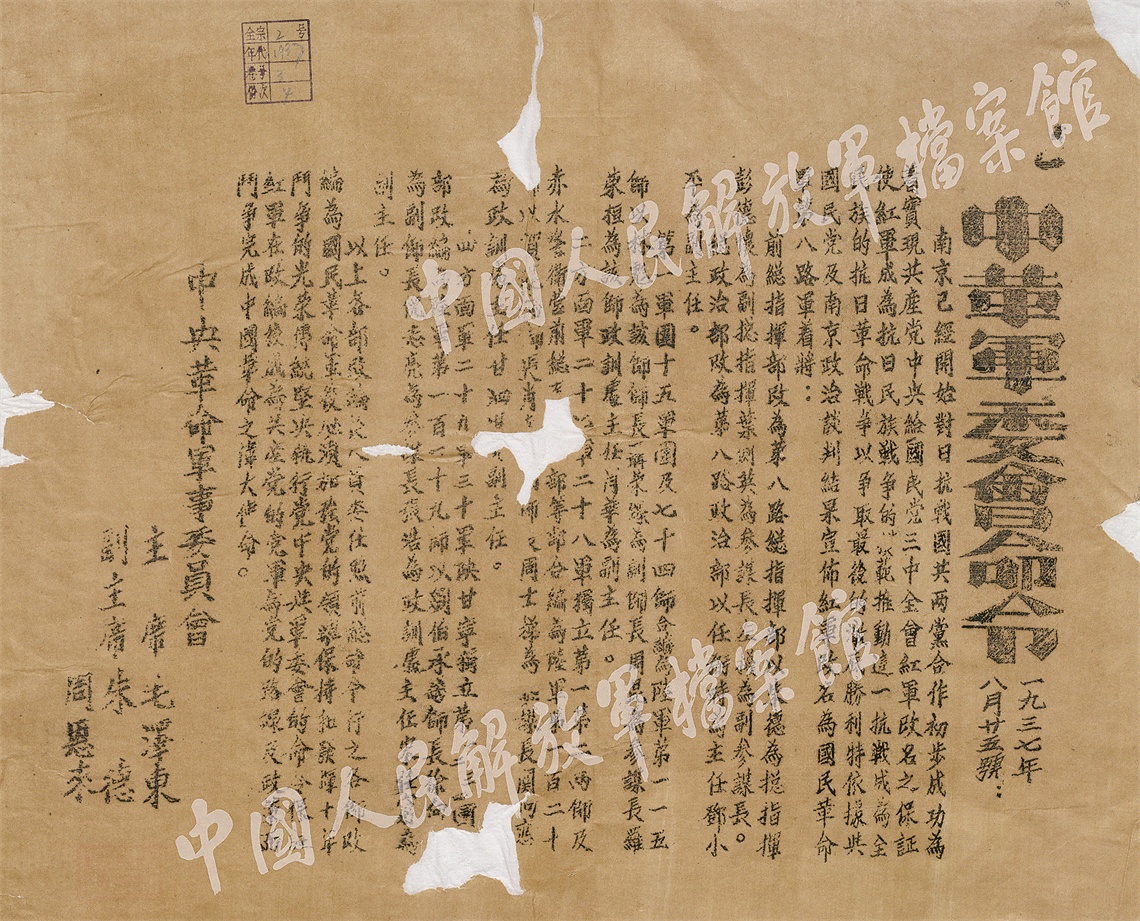 中華軍委會命令
一九三七年
八月廿五號：
南京已經開始對日抗戰國共两黨合作初步成功為
着實現共産党中央給國民党三中全會紅軍改名之保証
使紅軍成為抗日民族戰争的 範推動這一抗戰成為全
民族的抗日革命戰争以争取最後的 勝利特依據共
國民党及南京政治談判結果宣佈紅軍改名為國民革命
軍第八路軍着將：
前總指揮部改為第八路總指揮部以 德為總指揮
彭德懷為副總指揮葉剑英為參謀長 為副參謀長。
總政治部改為第八路政治部以任弼時為主任鄧小
平為副主任。
第一軍團十五軍團及七十四師合編為陸軍第一一五
師以林 為該師師長聶荣臻為副師長周昆為參謀長羅
荣桓為該師政訓處主任肖華為副主任。
二方面軍二十 軍二十八軍獨立第一 二 師及
赤水警衛營前總 部等部合編為陸軍 百二十
師以賀 肖 師 周士第為 謀長関向應
為政訓 任甘泗 副主任。
四方面軍二十九軍三十軍陝甘寧獨立第 團
部改編 第一百二十九師以刘伯承為師長徐向
為副師長 志亮為參謀長張浩為政訓處主任 為
副主任。
以上各部改編後人員委任照前總命令行之各 改
編為國民革命軍後必須加強党的領導保持和發揮十年
鬥争的光荣傳統堅决執行党中央與軍委會的命令保証
紅軍在改編後成為共産党的党軍為党的路線及政策而
鬥争完成中國革命之偉大使命。
中央革命軍事委員會
主 席 毛澤東
副主席 朱 德
周恩来
全宗 2 号
年代 1937
卷 3
份次 4
中國人民解放軍檔案館
中國人民解放軍檔案館